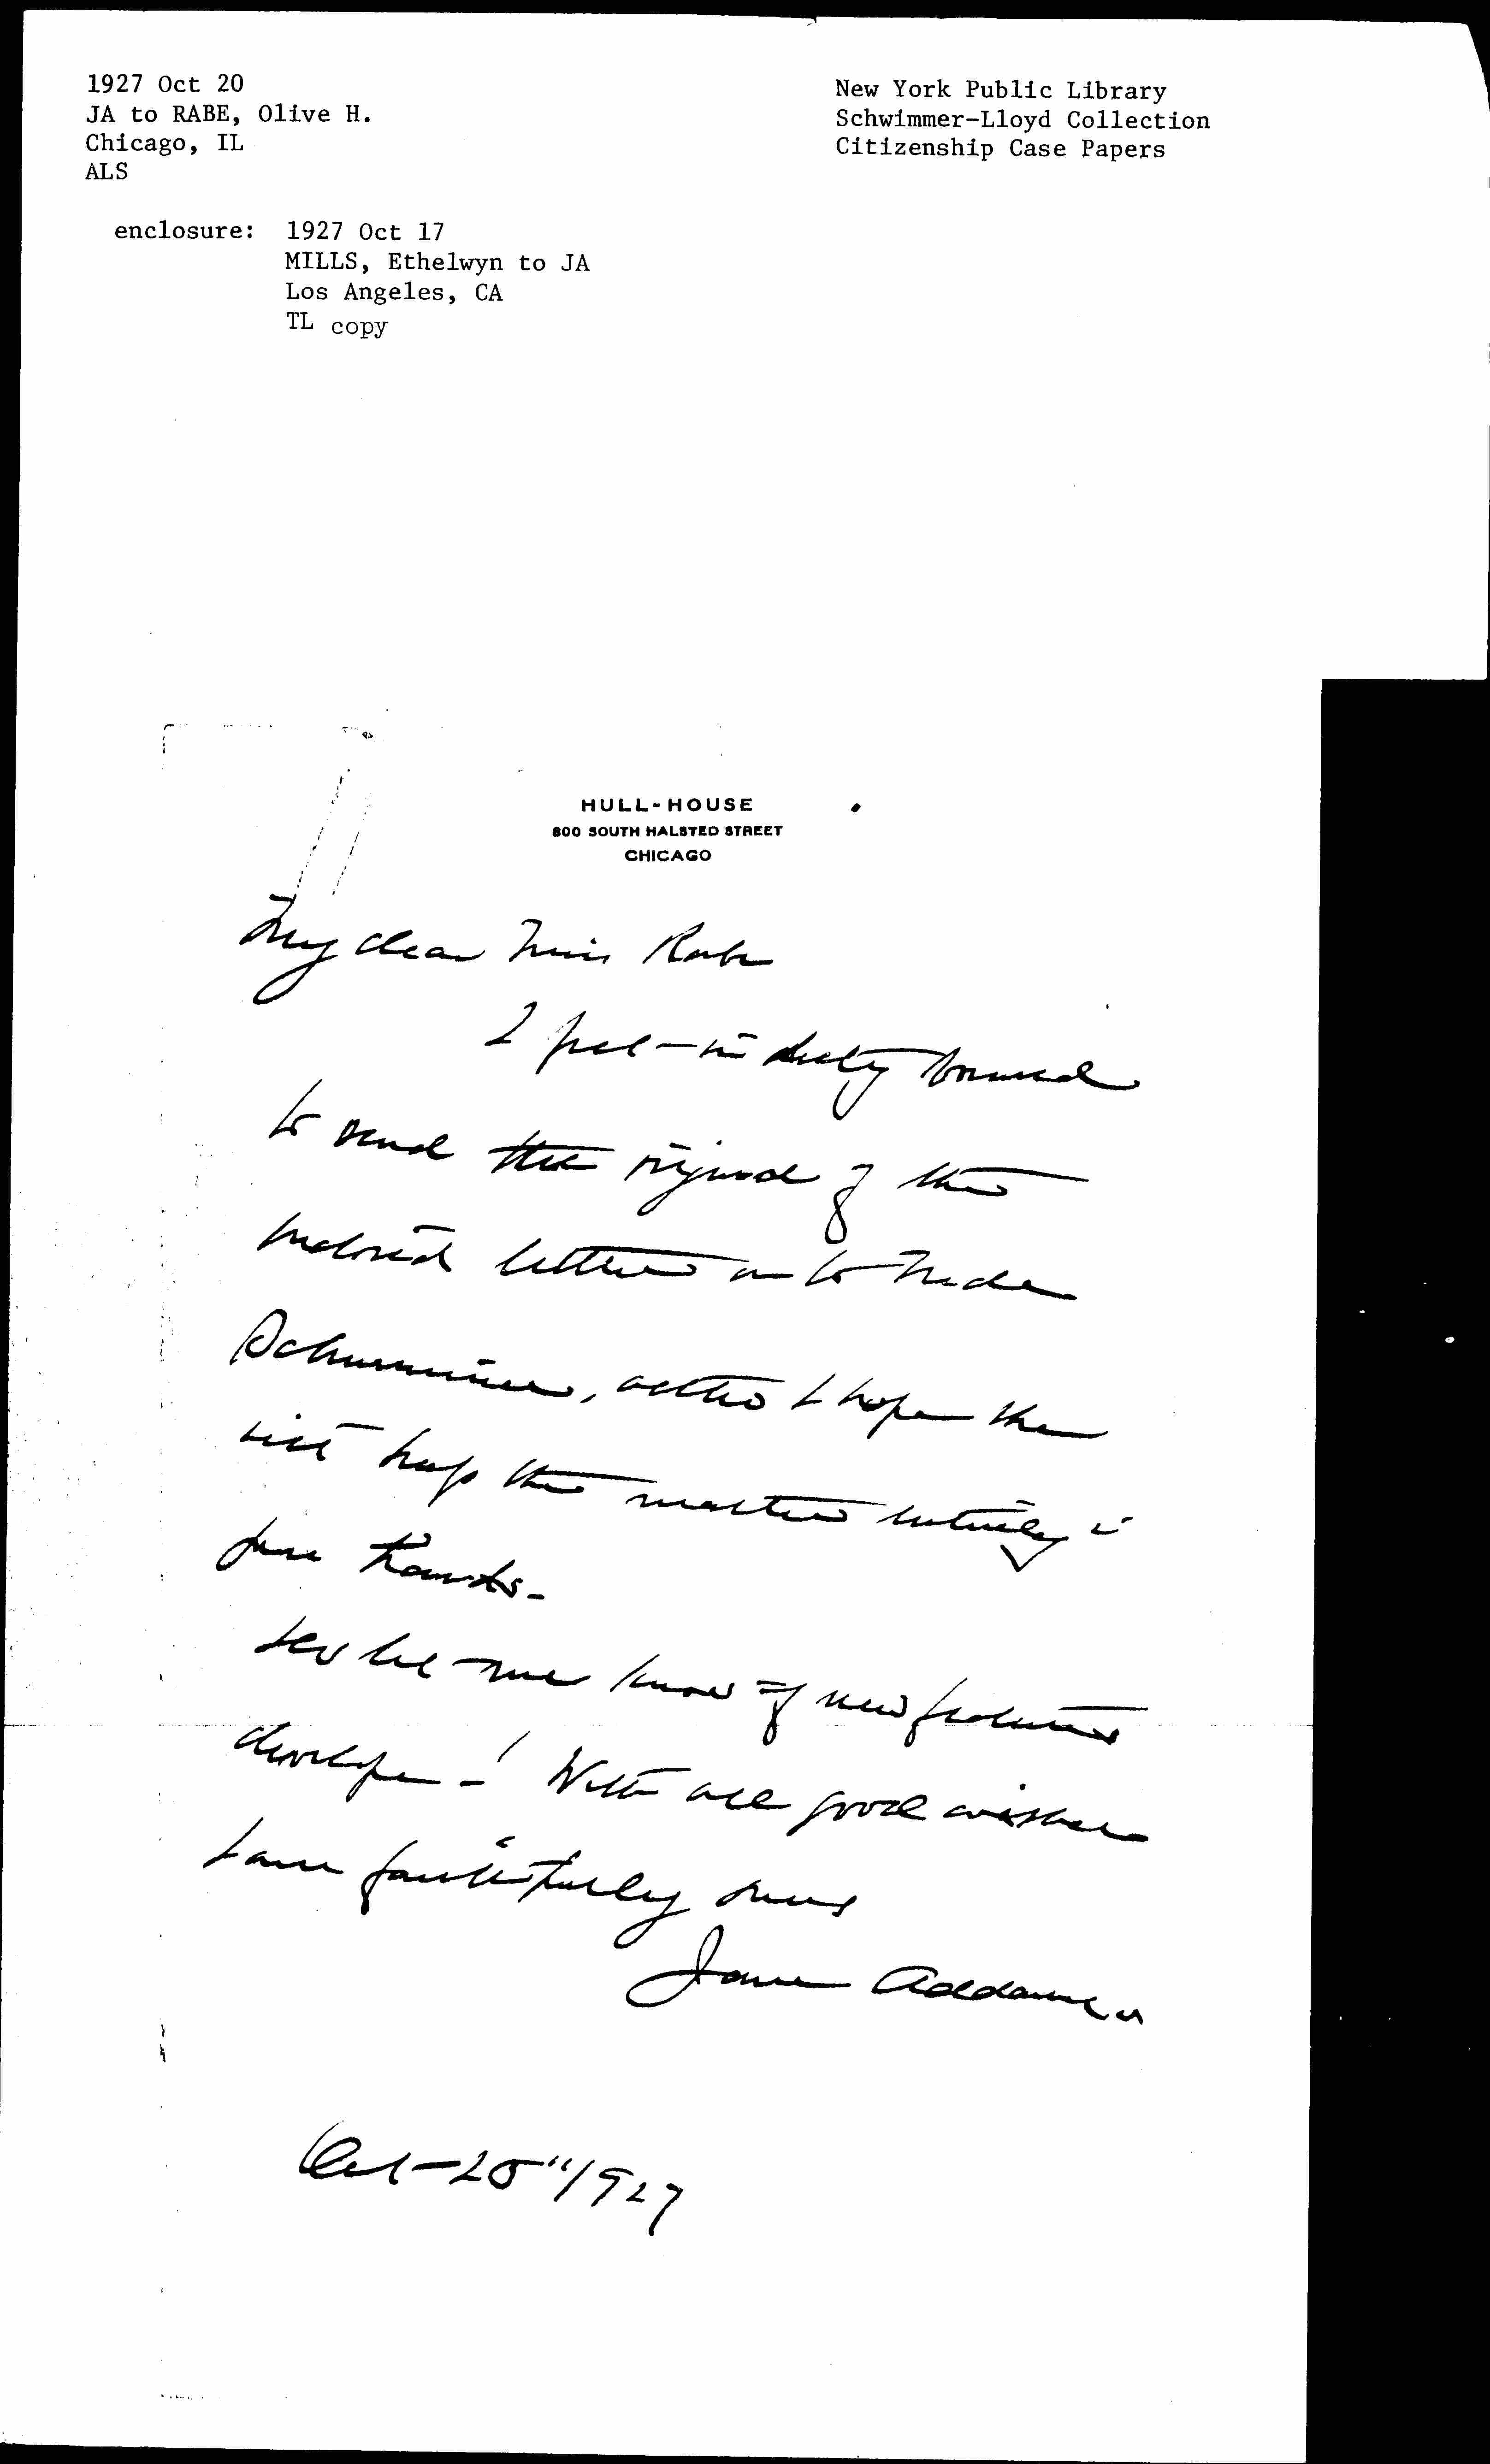 1927 Oct 20
JA to RABE, Olive H.
Chicago, IL
ALS
enclosure: 1927 Oct 17
MILLS, Ethelwyn to JA
Los Angeles, CA
TL copy
New York Public Library
Schwimmer-Lloyd Collection
Citizenship Case Papers
HULL-HOUSE
800 SOUTH HALSTED STREET
CHICAGO
My dear Miss Rabe
I feel in duty bound
to send the original of the
enclosed letter on to Mde
Schwimmer, altho I hope she
will keep the matter entirely in
your hands.
let me know if new features
develope - ! With all good wishes
I am faithfully yours
Jane Addams
Oct - 20" 1927